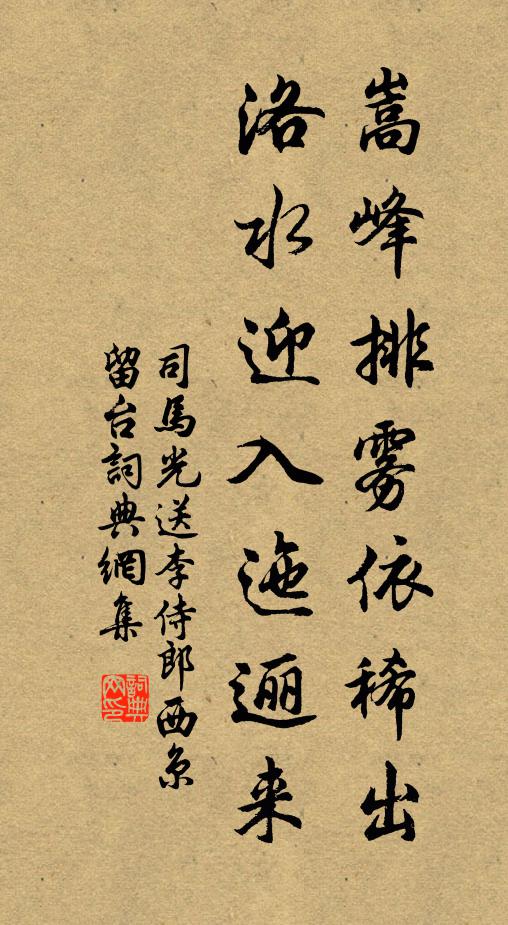 嵩峰排雾依稀出
洛水迎入迤逦来
司馬光送李侍郎西京
留台詞典網集
詞典网印